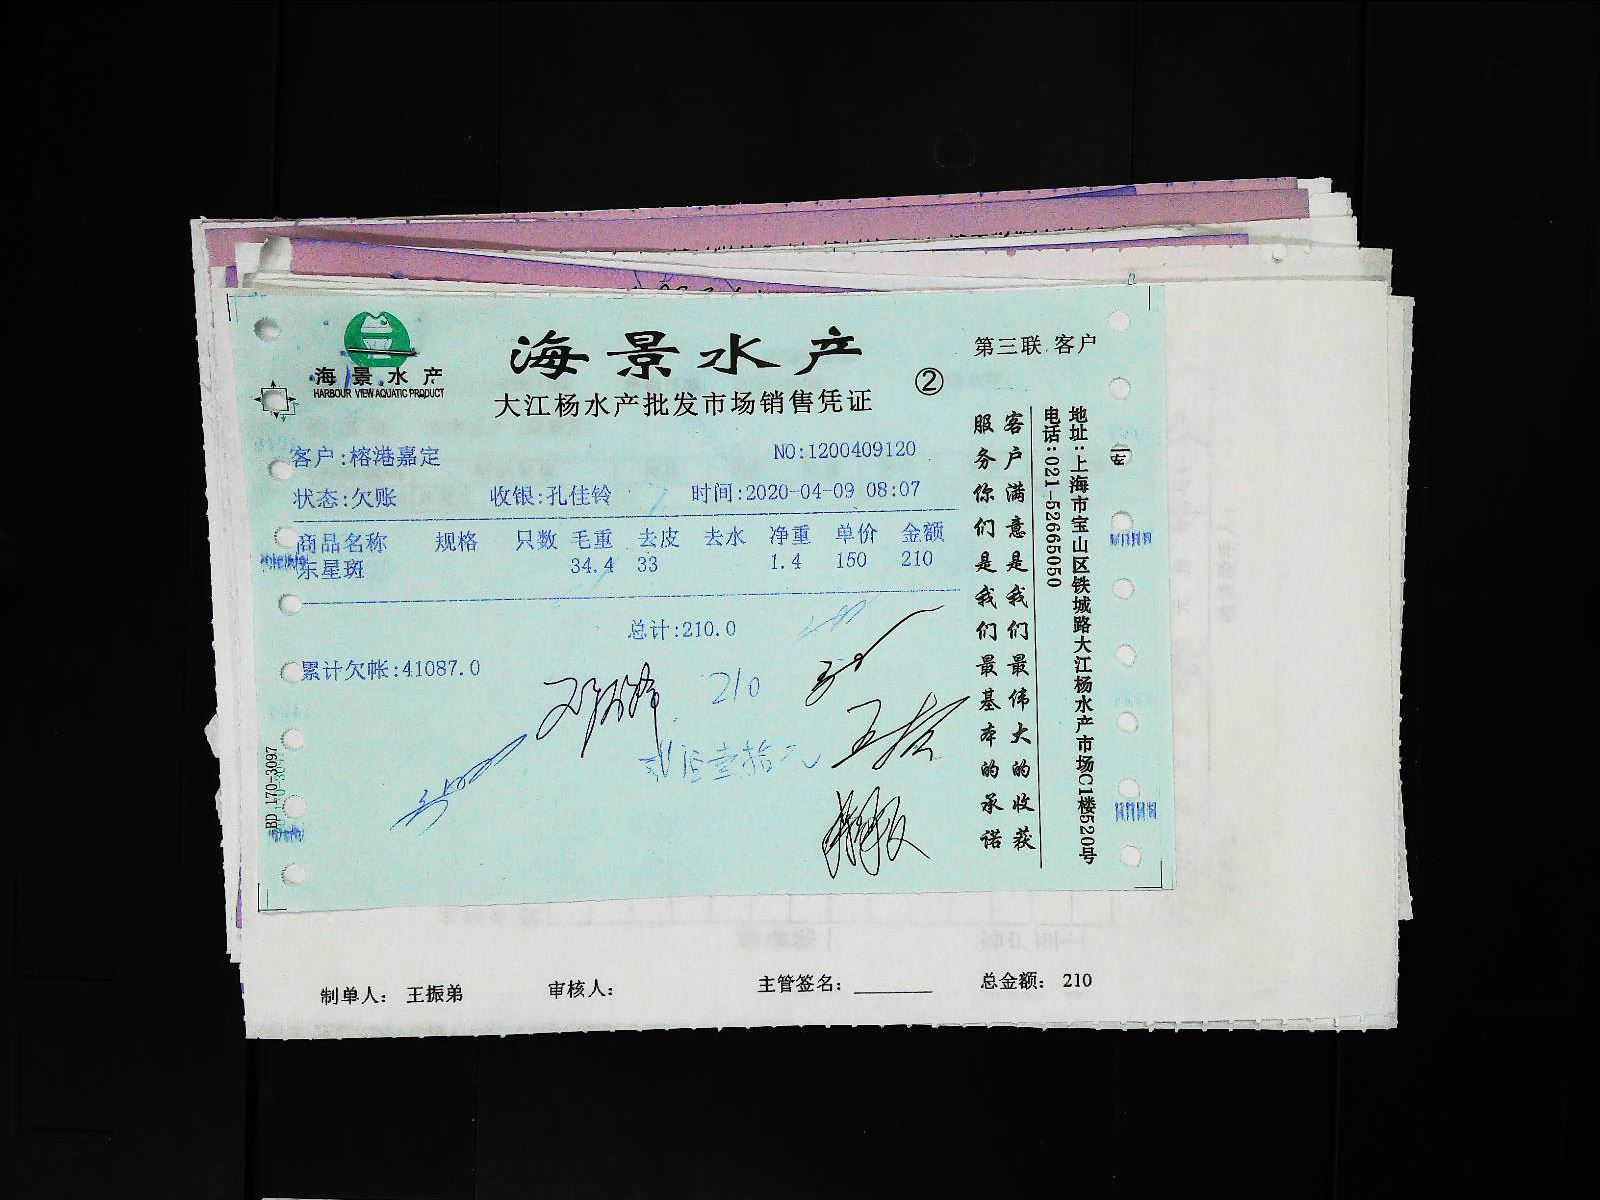 海景水产
HARBOUR VIEW AQUATIC PRODUCT
海景水产
大江杨水产批发市场销售凭证
②
第三联 客户
客户:榕港嘉定 NO:1200409120
状态:欠账 收银:孔佳铃 时间:2020-04-09 08:07
商品名称 规格 只数 毛重 去皮 去水 净重 单价 金额
东星斑 34.4 33 1.4 150 210
总计:210.0
累计欠帐:41087.0
210
贰佰壹拾元
客户满意是我们最伟大的收获
服务你们是我们最基本的承诺
地址:上海市宝山区铁城路大江杨水产市场C1楼520号
电话:021-52665050
BD 170-3097
制单人: 王振弟 审核人: 主管签名: 总金额: 210